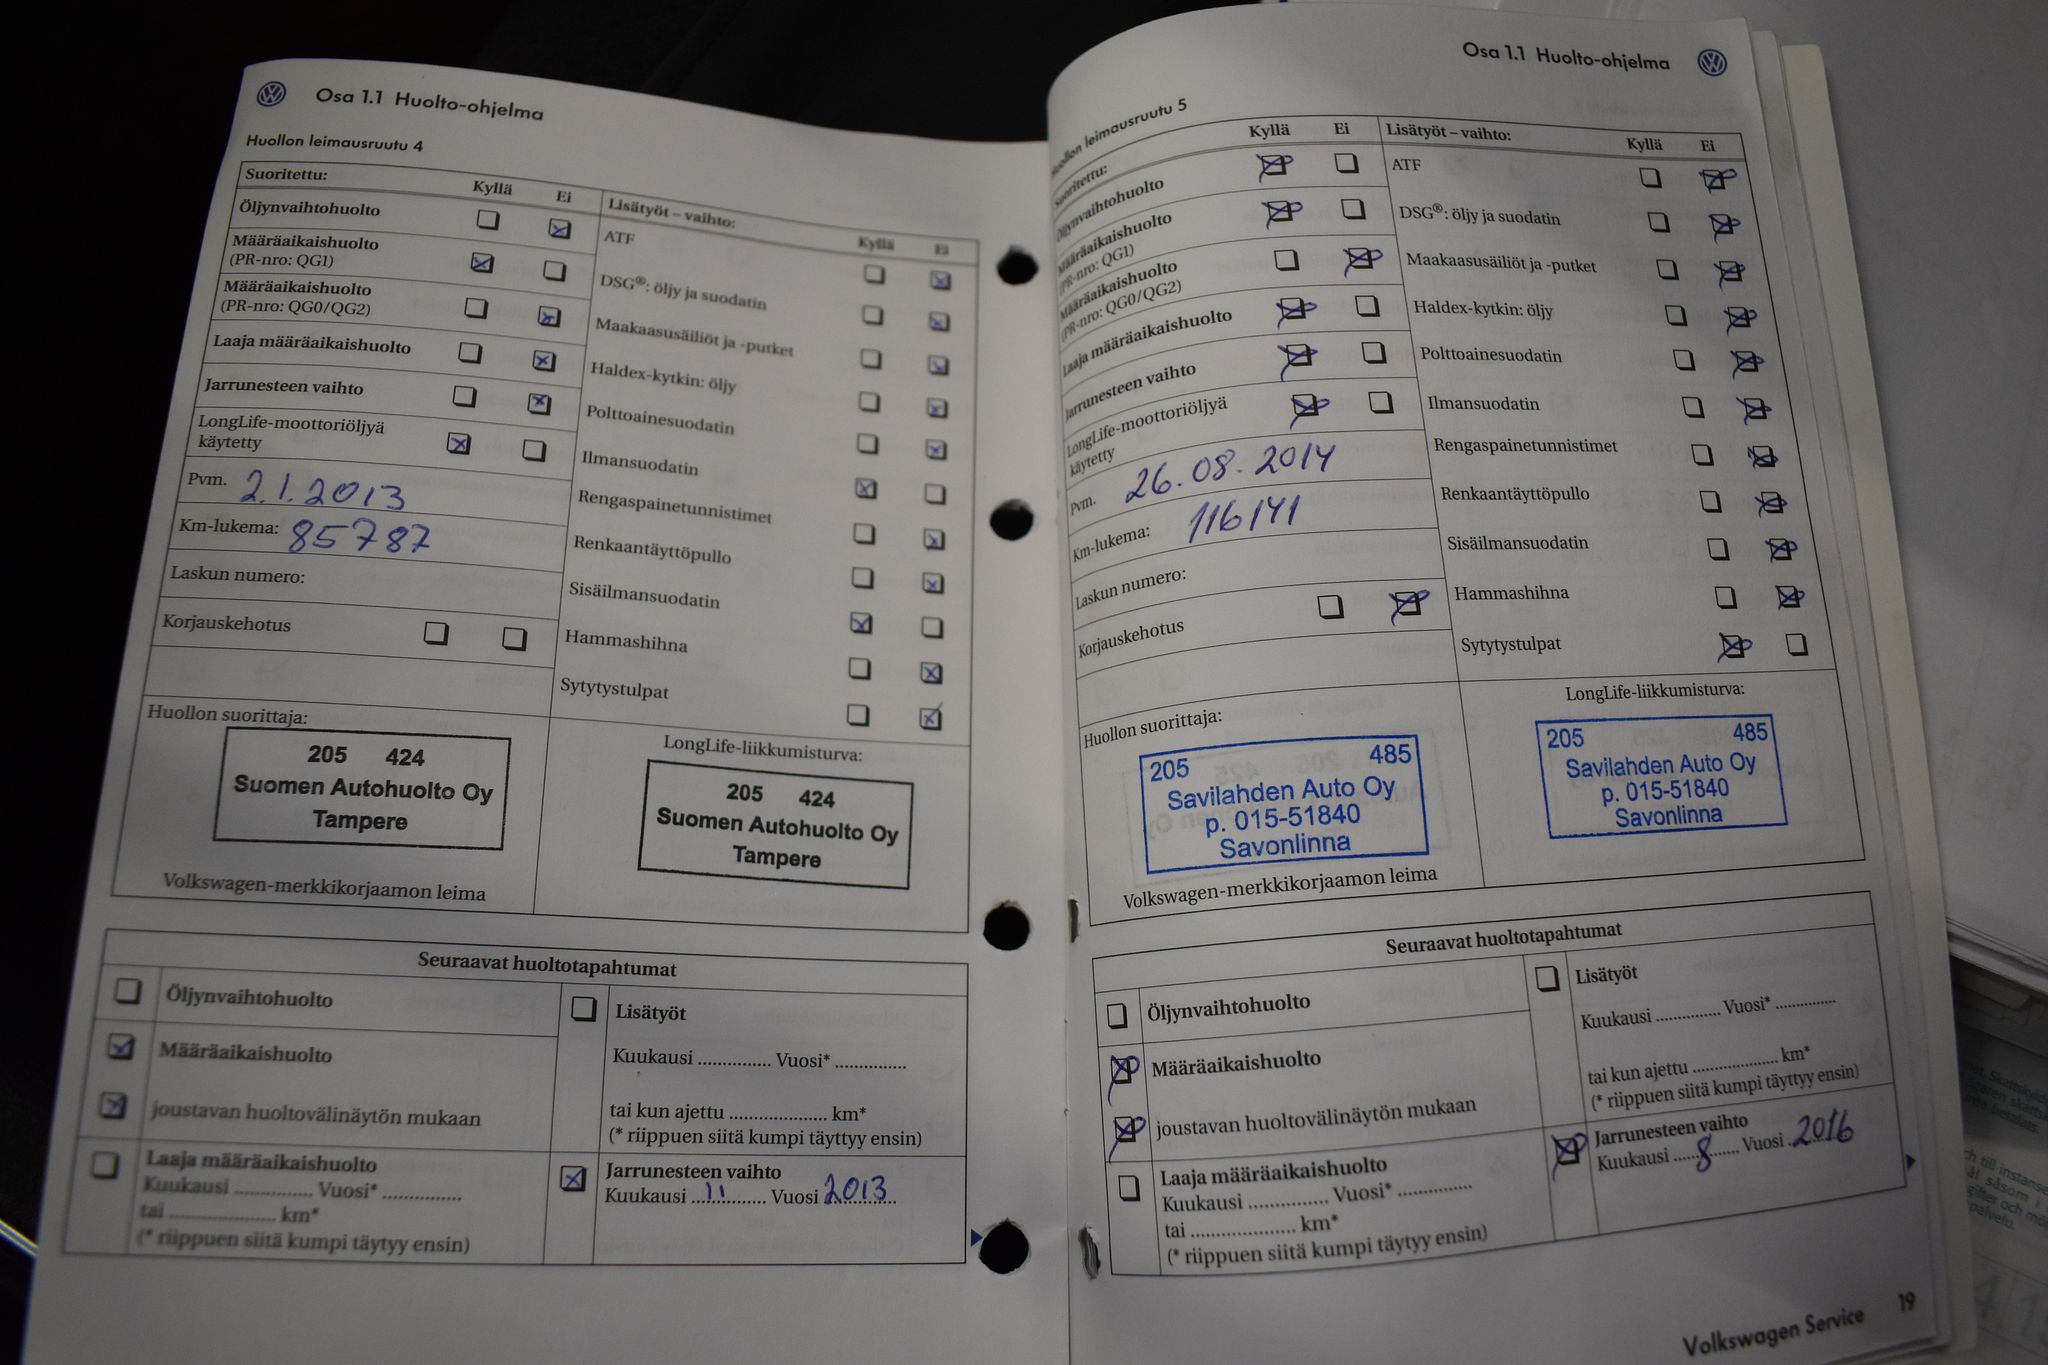 Osa 1.1 Huolto-ohjelma
Huollon leimausruutu 4
Suoritettu: Kyllä Ei
Öljynvaihtohuolto
Määräaikaishuolto
(PR-nro: QG1)
Määräaikaishuolto
(PR-nro: QG0/QG2)
Laaja määräaikaishuolto
Jarrunesteen vaihto
LongLife-moottoriöljyä
käytetty
Pvm. 2.1.2013
Km-lukema: 85787
Laskun numero:
Korjauskehotus
Lisätyöt – vaihto: Kyllä Ei
ATF
DSG®: öljy ja suodatin
Maakaasusäiliöt ja -putket
Haldex-kytkin: öljy
Polttoainesuodatin
Ilmansuodatin
Rengaspainetunnistimet
Renkaantäyttöpullo
Sisäilmansuodatin
Hammashihna
Sytytystulpat
Huollon suorittaja:
205 424
Suomen Autohuolto Oy
Tampere
Volkswagen-merkkikorjaamon leima
LongLife-liikkumisturva:
205 424
Suomen Autohuolto Oy
Tampere
Seuraavat huoltotapahtumat
Öljynvaihtohuolto
Määräaikaishuolto
joustavan huoltovälinäytön mukaan
Laaja määräaikaishuolto
Kuukausi .............. Vuosi* ..............
tai .................... km*
(* riippuen siitä kumpi täytyy ensin)
Lisätyöt
Kuukausi ............. Vuosi* .............
tai kun ajettu ................. km*
(* riippuen siitä kumpi täyttyy ensin)
Jarrunesteen vaihto
Kuukausi 11 Vuosi 2013
Osa 1.1 Huolto-ohjelma
Huollon leimausruutu 5
Suoritettu: Kyllä Ei
Öljynvaihtohuolto
Määräaikaishuolto
(PR-nro: QG1)
Määräaikaishuolto
(PR-nro: QG0/QG2)
Laaja määräaikaishuolto
Jarrunesteen vaihto
LongLife-moottoriöljyä
käytetty
Pvm. 26.08.2014
Km-lukema: 116141
Laskun numero:
Korjauskehotus
Lisätyöt – vaihto: Kyllä Ei
ATF
DSG®: öljy ja suodatin
Maakaasusäiliöt ja -putket
Haldex-kytkin: öljy
Polttoainesuodatin
Ilmansuodatin
Rengaspainetunnistimet
Renkaantäyttöpullo
Sisäilmansuodatin
Hammashihna
Sytytystulpat
Huollon suorittaja:
205 485
Savilahden Auto Oy
p. 015-51840
Savonlinna
Volkswagen-merkkikorjaamon leima
LongLife-liikkumisturva:
205 485
Savilahden Auto Oy
p. 015-51840
Savonlinna
Seuraavat huoltotapahtumat
Öljynvaihtohuolto
Määräaikaishuolto
joustavan huoltovälinäytön mukaan
Laaja määräaikaishuolto
Kuukausi .............. Vuosi* .............
tai .................... km*
(* riippuen siitä kumpi täytyy ensin)
Lisätyöt
Kuukausi ............. Vuosi* .............
tai kun ajettu ................. km*
(* riippuen siitä kumpi täyttyy ensin)
Jarrunesteen vaihto
Kuukausi 8 Vuosi 2016
Volkswagen Service 19